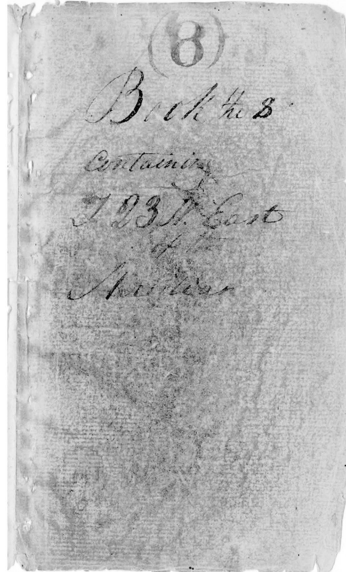 (8)
Book the 8
containing
T 23 N. East
of
Meridian